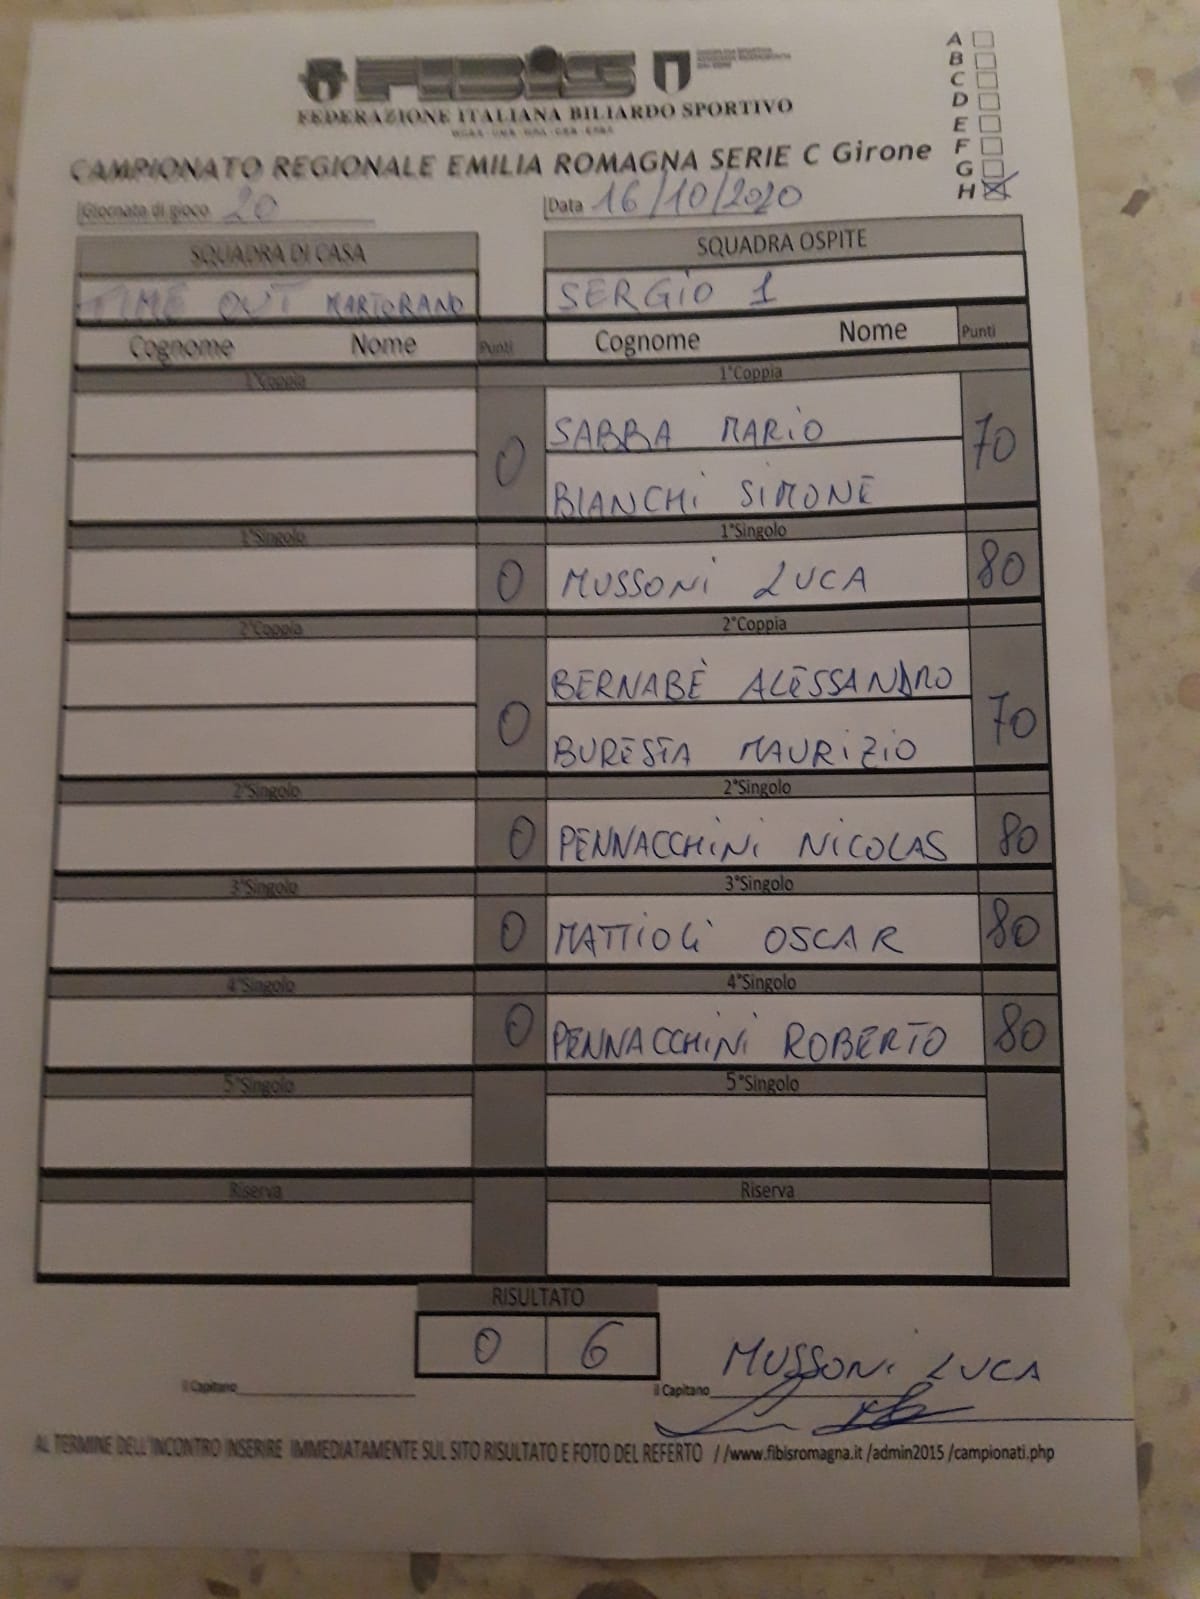 FIBiS
FEDERAZIONE ITALIANA BILIARDO SPORTIVO
A
B
C
D
E
F
G
H
CAMPIONATO REGIONALE EMILIA ROMAGNA SERIE C Girone
Giornata di gioco 20 Data 16/10/2020
SQUADRA DI CASA SQUADRA OSPITE
TIME OUT MARTORANO SERGIO 1
Cognome Nome Punti Cognome Nome Punti
1°Coppia 1°Coppia
0 SABBA MARIO 70
BIANCHI SIMONE
1°Singolo 1°Singolo
0 MUSSONI LUCA 80
2°Coppia 2°Coppia
BERNABÈ ALESSANDRO
0 BURESTA MAURIZIO 70
2°Singolo 2°Singolo
0 PENNACCHINI NICOLAS 80
3°Singolo 3°Singolo
0 MATTIOLI OSCAR 80
4°Singolo 4°Singolo
0 PENNACCHINI ROBERTO 80
5°Singolo 5°Singolo
Riserva Riserva
RISULTATO
0 6
MUSSONI LUCA
il Capitano il Capitano
AL TERMINE DELL'INCONTRO INSERIRE IMMEDIATAMENTE SUL SITO RISULTATO E FOTO DEL REFERTO //www.fibisromagna.it /admin2015 /campionati.php